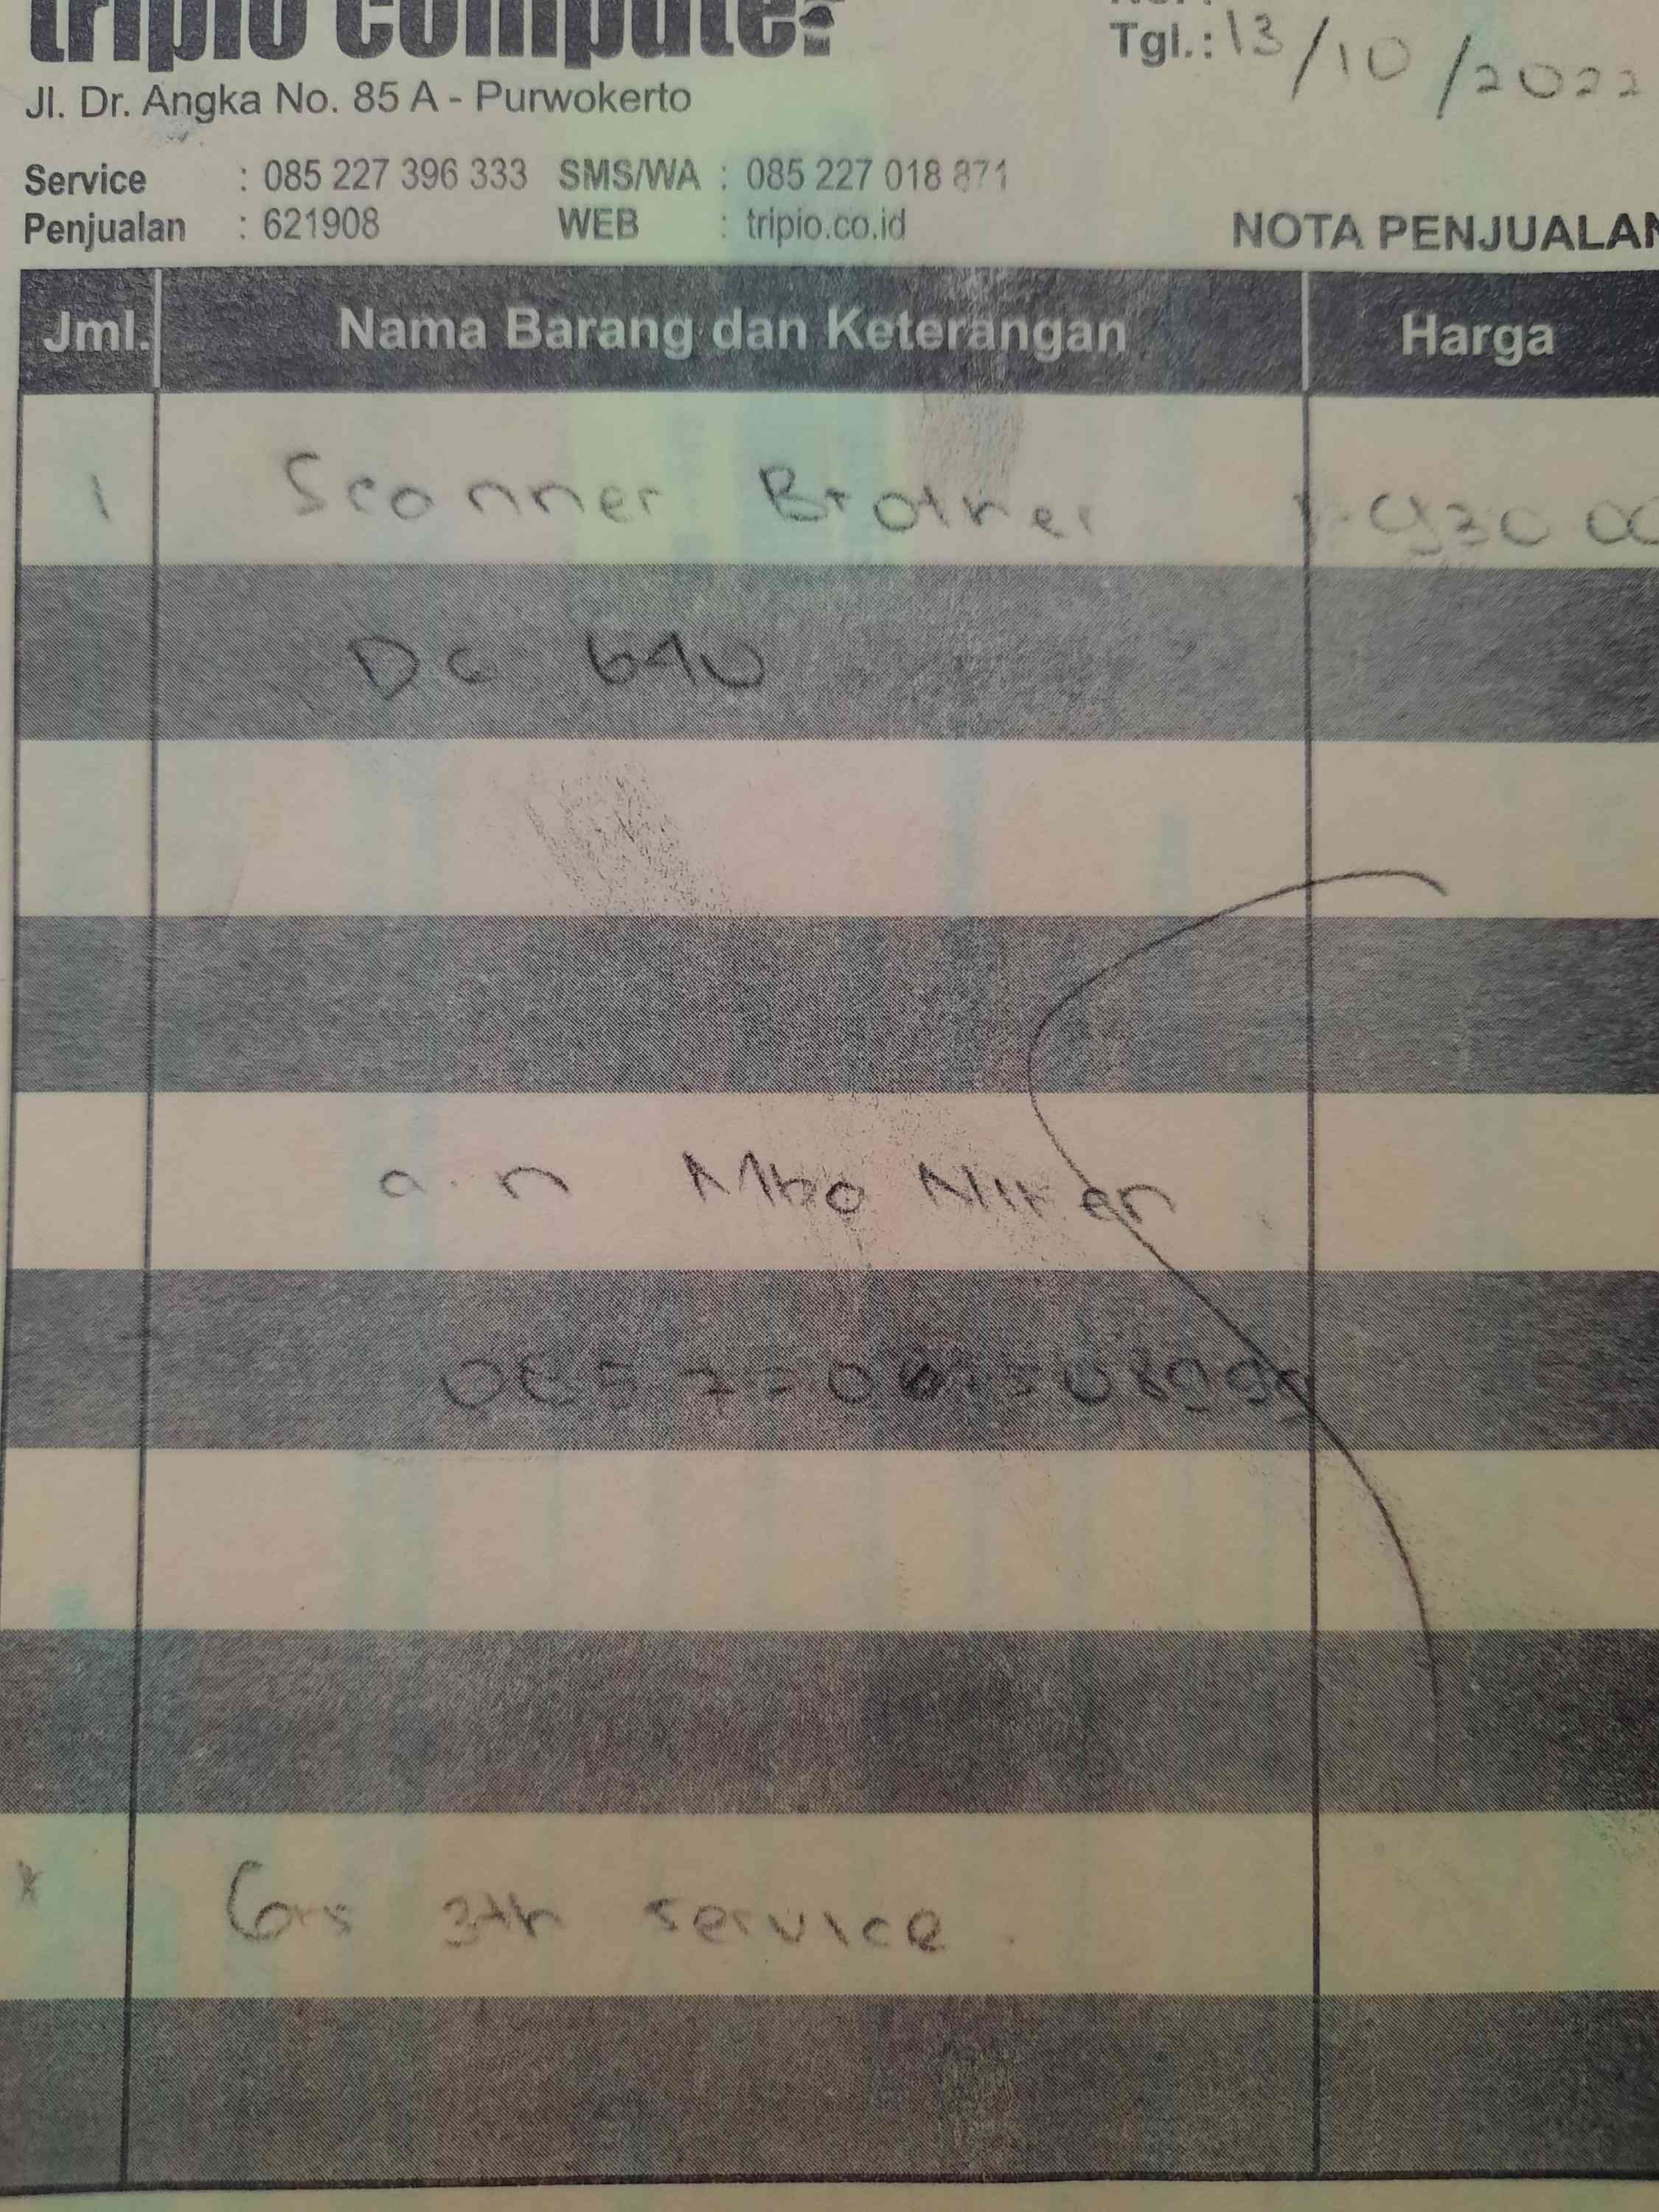 tripio computer
Tgl.: 13/10/2022
Jl. Dr. Angka No. 85 A - Purwokerto
Service : 085 227 396 333 SMS/WA : 085 227 018 871
Penjualan : 621908 WEB : tripio.co.id
NOTA PENJUALAN
Jml. Nama Barang dan Keterangan Harga
1 Scanner Brother
640
a.n Mba
3th service.